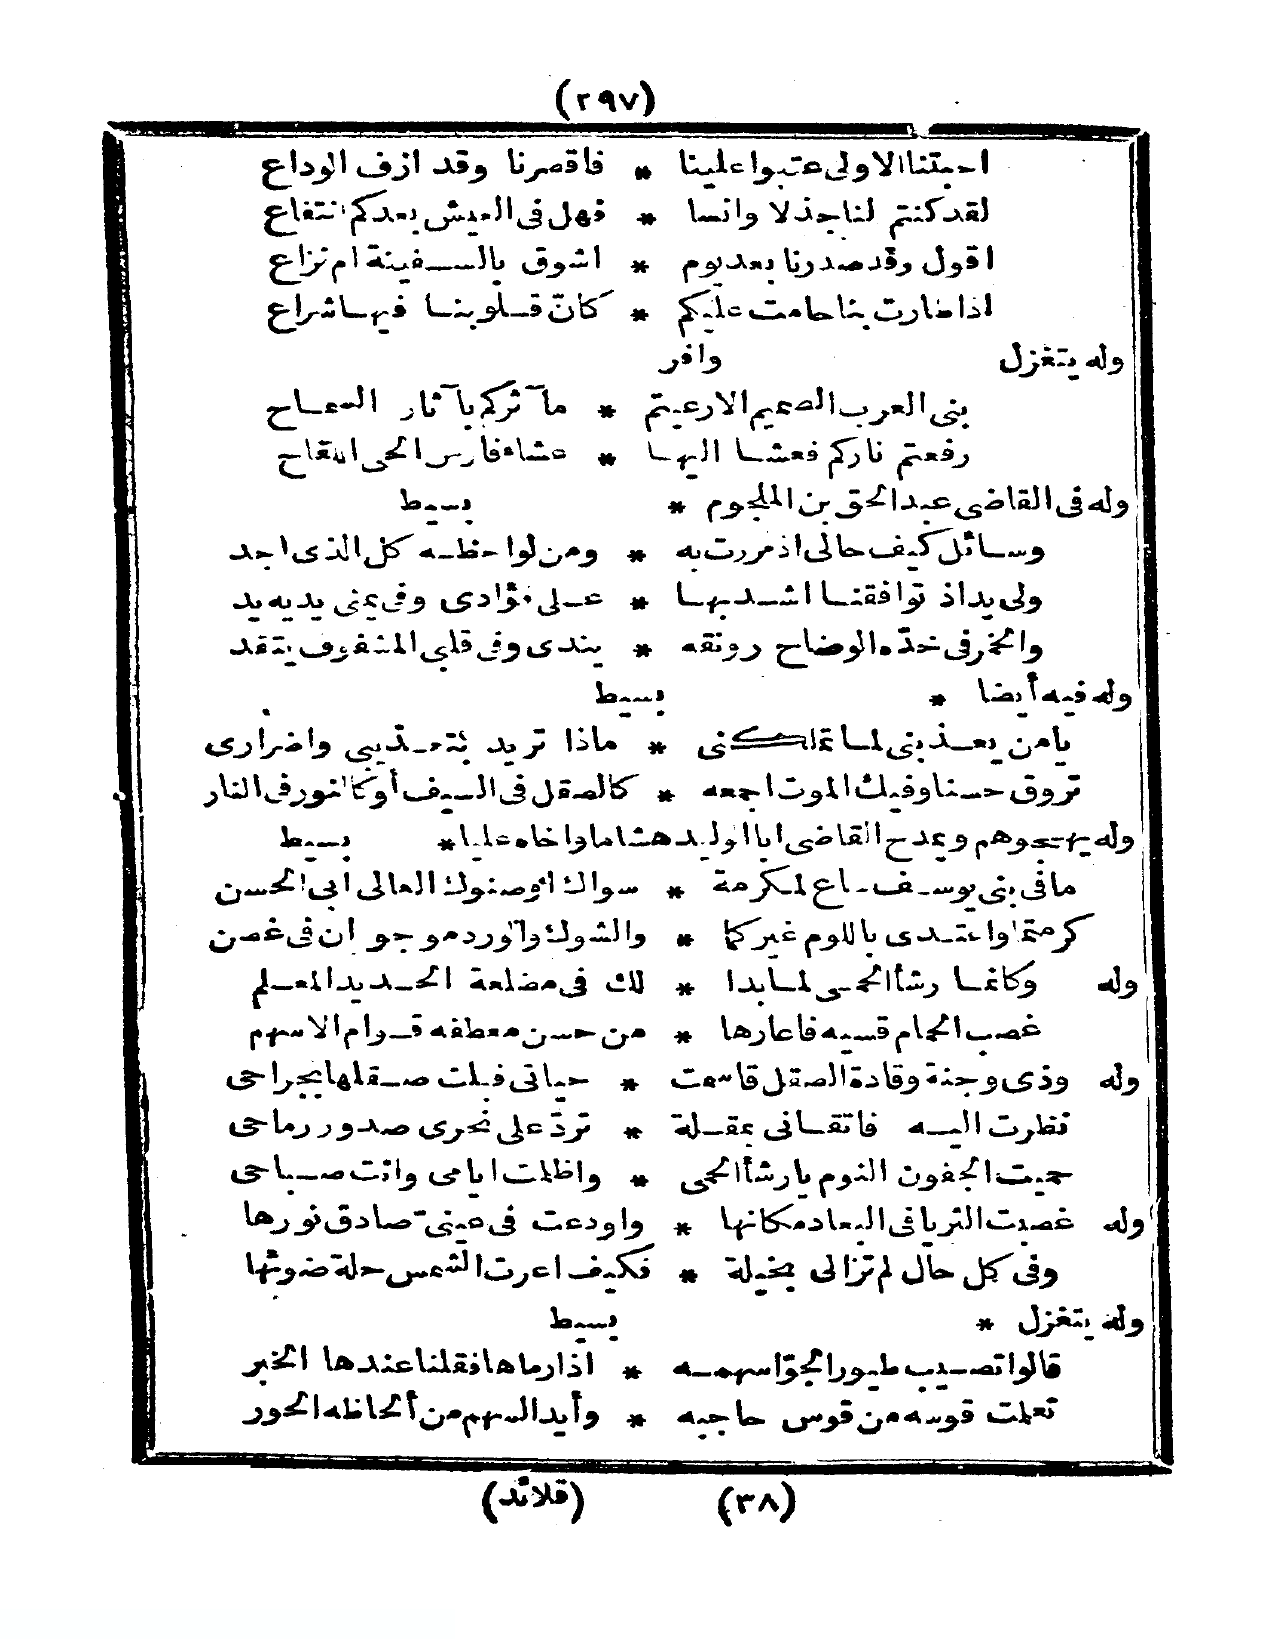 (٢٩٧)
احبتنا الاولى عتبوا علينا * فاقصرنا وقد ازف الوداع
لقد كنتم لنا جذلا وانسا * فهل فى العيش بعدكم انتفاع
اقول وقد صدرنا بعد يوم * اشوق بالسفينة ام نزاع
اذا طارت بنا حامت عليكم * كانّ قلوبنا فيها شراع
وله يتغزل وافر
بنى العرب الصميم الارعيتم * مآثركم بآثار السماح
رفعتم ناركم فعشا اليها * عشاء فارس الحى اللقاح
وله فى القاضى عبد الحق بن الملجوم * بسيط
وسائل كيف حالى اذ مررت به * ومن لواحظه كل الذى اجد
ولى يد اذ توافقنا اشد بها * على فؤادى وفى يمنى يديه يد
والخمر فى خدّه الوضاح رونقه * يندى وفى قلبى المشغوف يتقد
وله فيه أيضا * بسيط
يا من يعذبنى لما تملكنى * ماذا تريد بتعذيبى واضرارى
تروق حسنا وفيك الموت اجمعه * كالصقل فى السيف أو كالنور فى النار
وله يهجوهم ويمدح القاضى ابا الوليد هشاما واخاه عليا * بسيط
ما فى بنى يوسف ساع لمكرمة * سواك أو صنوك العالى ابى الحسن
كرمتما واعتدى باللوم غيركما * والشوك والورد موجوان فى غصن
وله وكانما رشأ الحمى لما بدا * لك فى مضلعة الحديد المعلم
غصب الحمام قسيه فاعارها * من حسن معطفه قوام الاسهم
وله وذى وجنة وقادة الصقل قاسمت * حياتى فبات صقلها بجراحى
نظرت اليه فاتقانى بمقلة * تردّ على نحرى صدور رماحى
حميت الجفون النوم يا رشأ الحمى * واظلمت ايامى وانت صباحى
وله غصبت الثريا فى البعاد مكانها * واودعت فى عينى صادق نورها
وفى كل حال لم تزالى بخيلة * فكيف اعرت الشمس حلة ضوئها
وله يتغزل * بسيط
قالوا تصيب طيور الجوّ اسهمه * اذا رماها فقلنا عندها الخبر
تعلمت قوسه من قوس حاجبه * وأيد السهم من ألحاظه الحور
(٣٨) (قلائد)